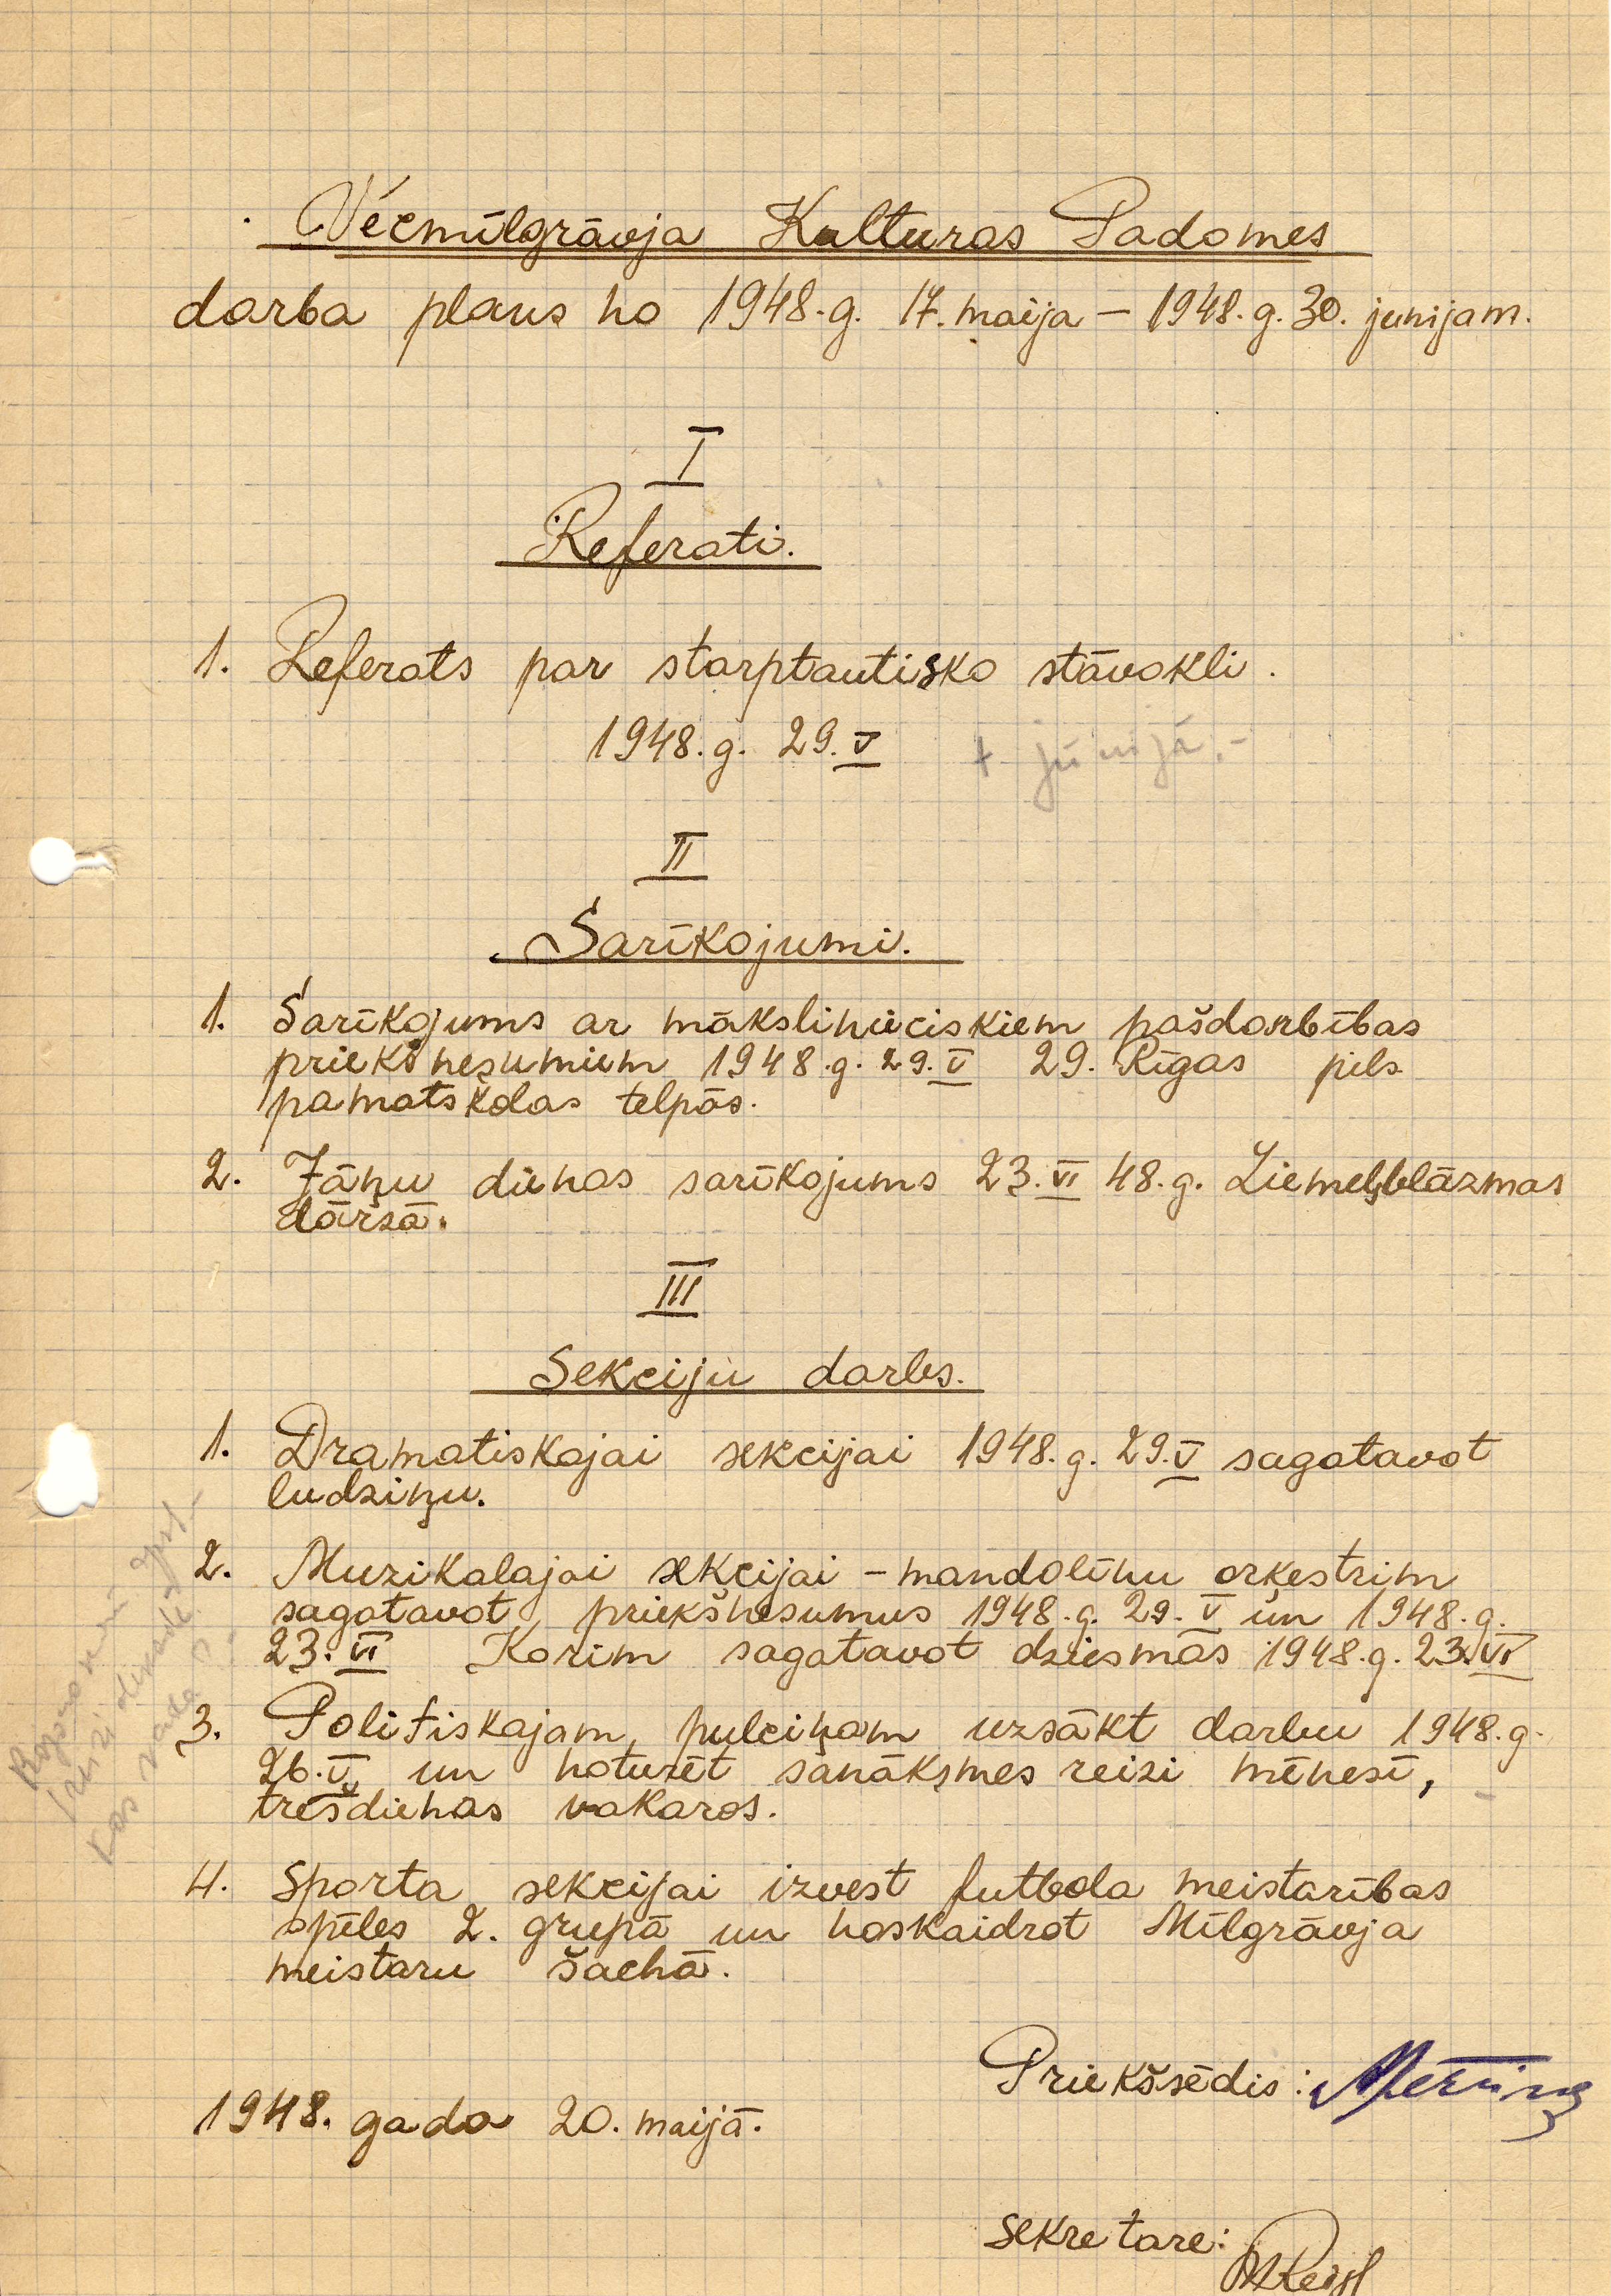 Vecmīlgrāvja Kulturas Padomes
darba plans no 1948.g. 17. maija – 1948.g. 30. junijam.
I
Referati.
1. Referats par starptautisko stāvokli.
1948.g. 29.V + jūnijā.-
II
Sarīkojumi.
1. Sarīkojums ar mākslinieciskiem pašdarbības
priekšnesumiem 1948.g. 29.V 29. Rīgas pils.
pamatskolas telpās.
2. Jāņu dienas sarīkojums 23.VI 48.g. Ziemeļblāzmas
dārzā.
III
Sekciju darbs.
1. Dramatiskajai sekcijai 1948.g. 29.V sagatavot
ludziņu.
2. Muzikalajai sekcijai – mandolīnu orķestrim
sagatavot priekšnesumus 1948.g. 29.V un 1948.g.
23.VI Korim sagatavot dziesmas 1948.g. 23.VI
3. Politiskajam pulciņam uzsākt darbu 1948.g.
26.V, un noturēt sanāksmes reizi mēnesī,
trešdienas vakaros.
4. Sporta sekcijai izvest futbola meistarības
spēles 2. grupā un noskaidrot Mīlgrāvja
meistaru šachā.
Priekšsēdis:
1948. gada 20. maijā.
Sekretare: